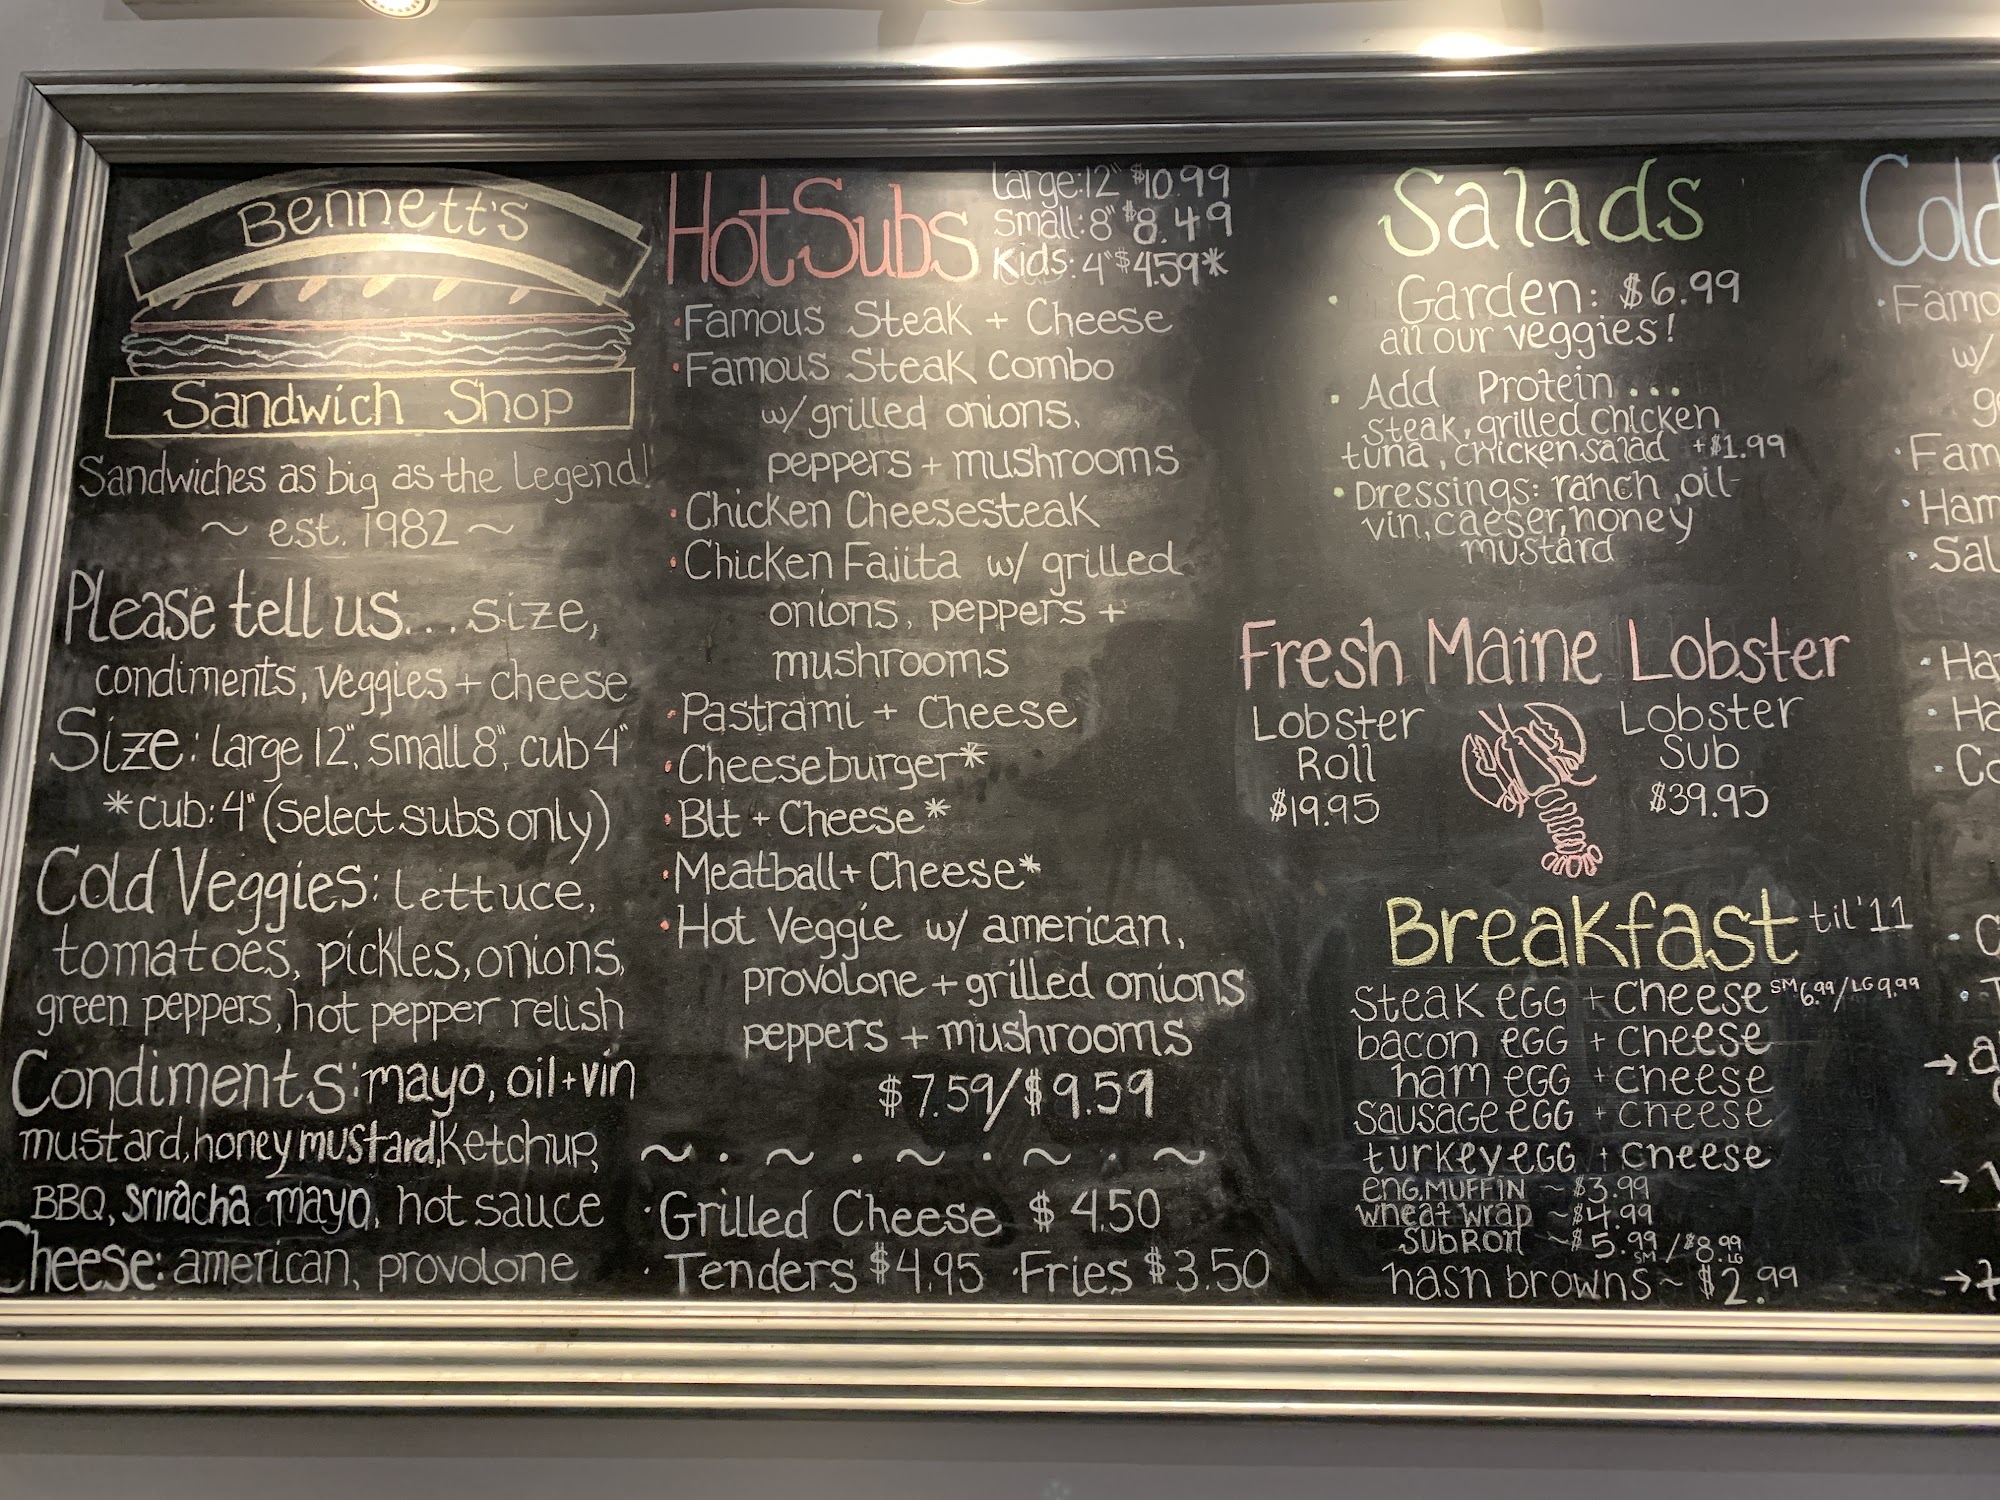 Bennett's
Sandwich Shop
Sandwiches as big as the Legend!
~ est. 1982 ~
Please tell us...size,
condiments, veggies + cheese
Size: large 12", small 8", cub 4"
*cub: 4" (select subs only)
Cold Veggies: lettuce,
tomatoes, pickles, onions,
green peppers, hot pepper relish
Condiments: mayo, oil+vin
mustard, honey mustard, ketchup,
BBQ, sriracha mayo, hot sauce
Cheese: american, provolone
Hot Subs
large: 12" $10.99
small: 8" $8.49
kids: 4" $4.59*
·Famous Steak + Cheese
·Famous Steak Combo
w/ grilled onions,
peppers + mushrooms
·Chicken Cheesesteak
·Chicken Fajita w/ grilled
onions, peppers +
mushrooms
·Pastrami + Cheese
·Cheeseburger*
·Blt + Cheese*
·Meatball + Cheese*
·Hot Veggie w/ american,
provolone + grilled onions
peppers + mushrooms
$7.59/$9.59
~ · ~ · ~ · ~ · ~
·Grilled Cheese $4.50
·Tenders $4.95 ·Fries $3.50
Salads
· Garden: $6.99
all our veggies!
· Add Protein...
steak, grilled chicken
tuna, chicken salad +$1.99
· Dressings: ranch, oil-
vin, caeser, honey
mustard
Fresh Maine Lobster
Lobster
Roll
$19.95
Lobster
Sub
$39.95
Breakfast til '11
steak egg + cheese SM 6.99/LG 9.99
bacon egg + cheese
ham egg + cheese
sausage egg + cheese
turkey egg + cheese
eng. muffin ~ $3.99
wheat wrap ~ $4.99
sub roll ~ $5.99 SM / $8.99 LG
hash browns ~ $2.99
Cold
·Famo
w/
·Fam
·Ham
·Sal
·Ha
·Ha
·Co